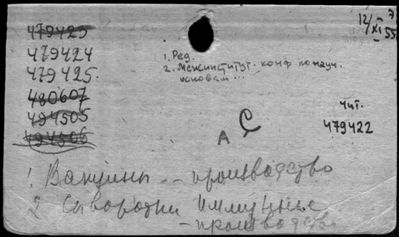 479425
479424
479425
480607
494505
494506
12/XI 55
1. Ред.
2. Межинститут. конф по науч.
основам...
А С
Чит.
479422
1 Вакцины -- производство
2 Сыворотки иммунные
- производство